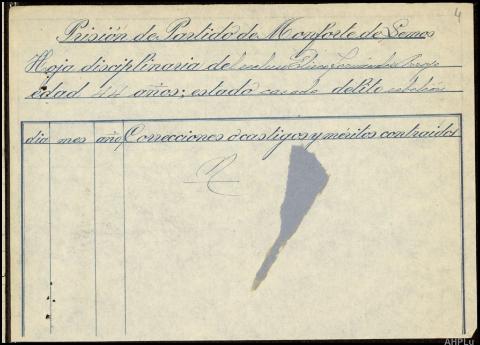 4
Prisión de Partido de Monforte de Lemos
Hoja disciplinaria del recluso Fernández
edad 44 años; estado casado delito rebelión
dia mes año Correcciones o castigos y méritos contraidos
AHPLu